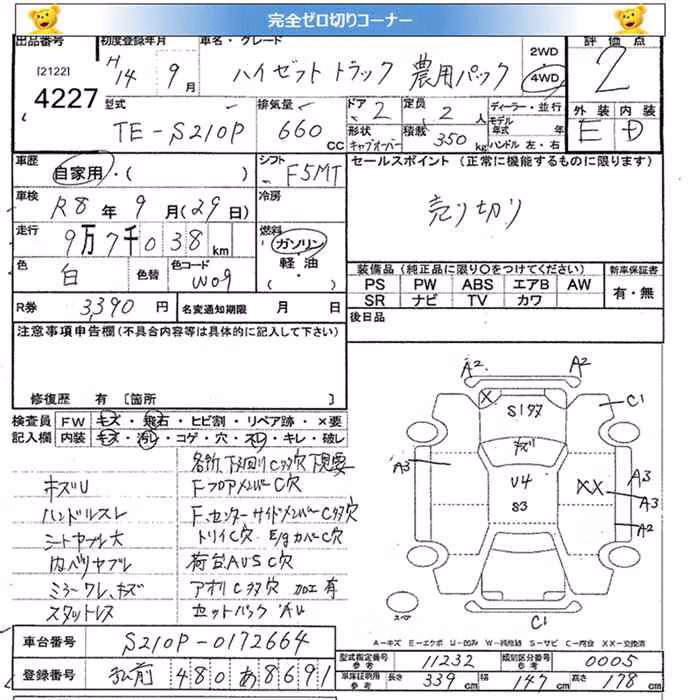 完全ゼロ切りコーナー
出品番号 初度登録年月 車名・グレード 2WD 評価点
[2122] H14 9月 ハイゼットトラック 農用パック 4WD 2
4227
型式 排気量 ドア 2 定員 2人 ディーラー・並行 外装 内装
TE-S210P 660CC 形状 キャブオーバー 積載 350kg モデル年式 年 ハンドル 左・右 E D
車歴 自家用・( ) シフト F5MT セールスポイント (正常に機能するものに限ります)
車検 R8年 9月(29日) 冷房 売り切り
走行 9万7千038km 燃料 ガソリン
軽・油
( )
色 白 色替 色コード W09 装備品 (純正品に限り○をつけてください) 新車保証書
PS PW ABS エアB AW 有・無
SR ナビ TV カワ
R券 3,390円 名変通知期限 月 日 後日品
注意事項申告欄(不具合内容等は具体的に記入して下さい)
修復歴 有 [箇所 ]
検査員 FW キズ・飛石・ヒビ割・リペア跡・×要
記入欄 内装 キズ・汚レ・コゲ・穴・スレ・キレ・破レ
各所下廻りC多穴下見要
キズU FフロアメンバーC穴
ハンドルスレ F、センターサイドメンバーC多穴
シートヤブレ大 トリイC穴 E/gカバーC穴
内ベリヤブレ 荷台AUS C穴
ミラーワレ、キズ アオリC多穴 加工有
スタットレス セットバック AU
A2 A2
X S1多 C1
キズ
A3 U4 XX A3
S3 A3
A2
スペア C1
A-キズ E-エクボ U-凹み W-補修跡 S-サビ C-腐食 XX-交換済
車台番号 S210P-0172664
型式指定番号 参考 11232 類別区分番号 参考 0005
登録番号 弘前 480 あ 8691
車庫証明用 参考 長さ 339cm 幅 147cm 高さ 178cm